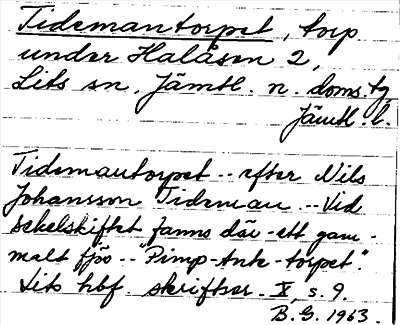 Tidemantorpet, torp
under Halåsen 2,
Lits sn. Jämtl. n. doms.tg
Jämtl. l.
Tidemantorpet -- efter Nils
Johansson Tideman -- Vid
sekelskiftet fanns där - ett gam-
malt fjös -- "Pimp-Ante-torpet".
Lits hbf. skriftser. X, s. 9.
B.G. 1963.